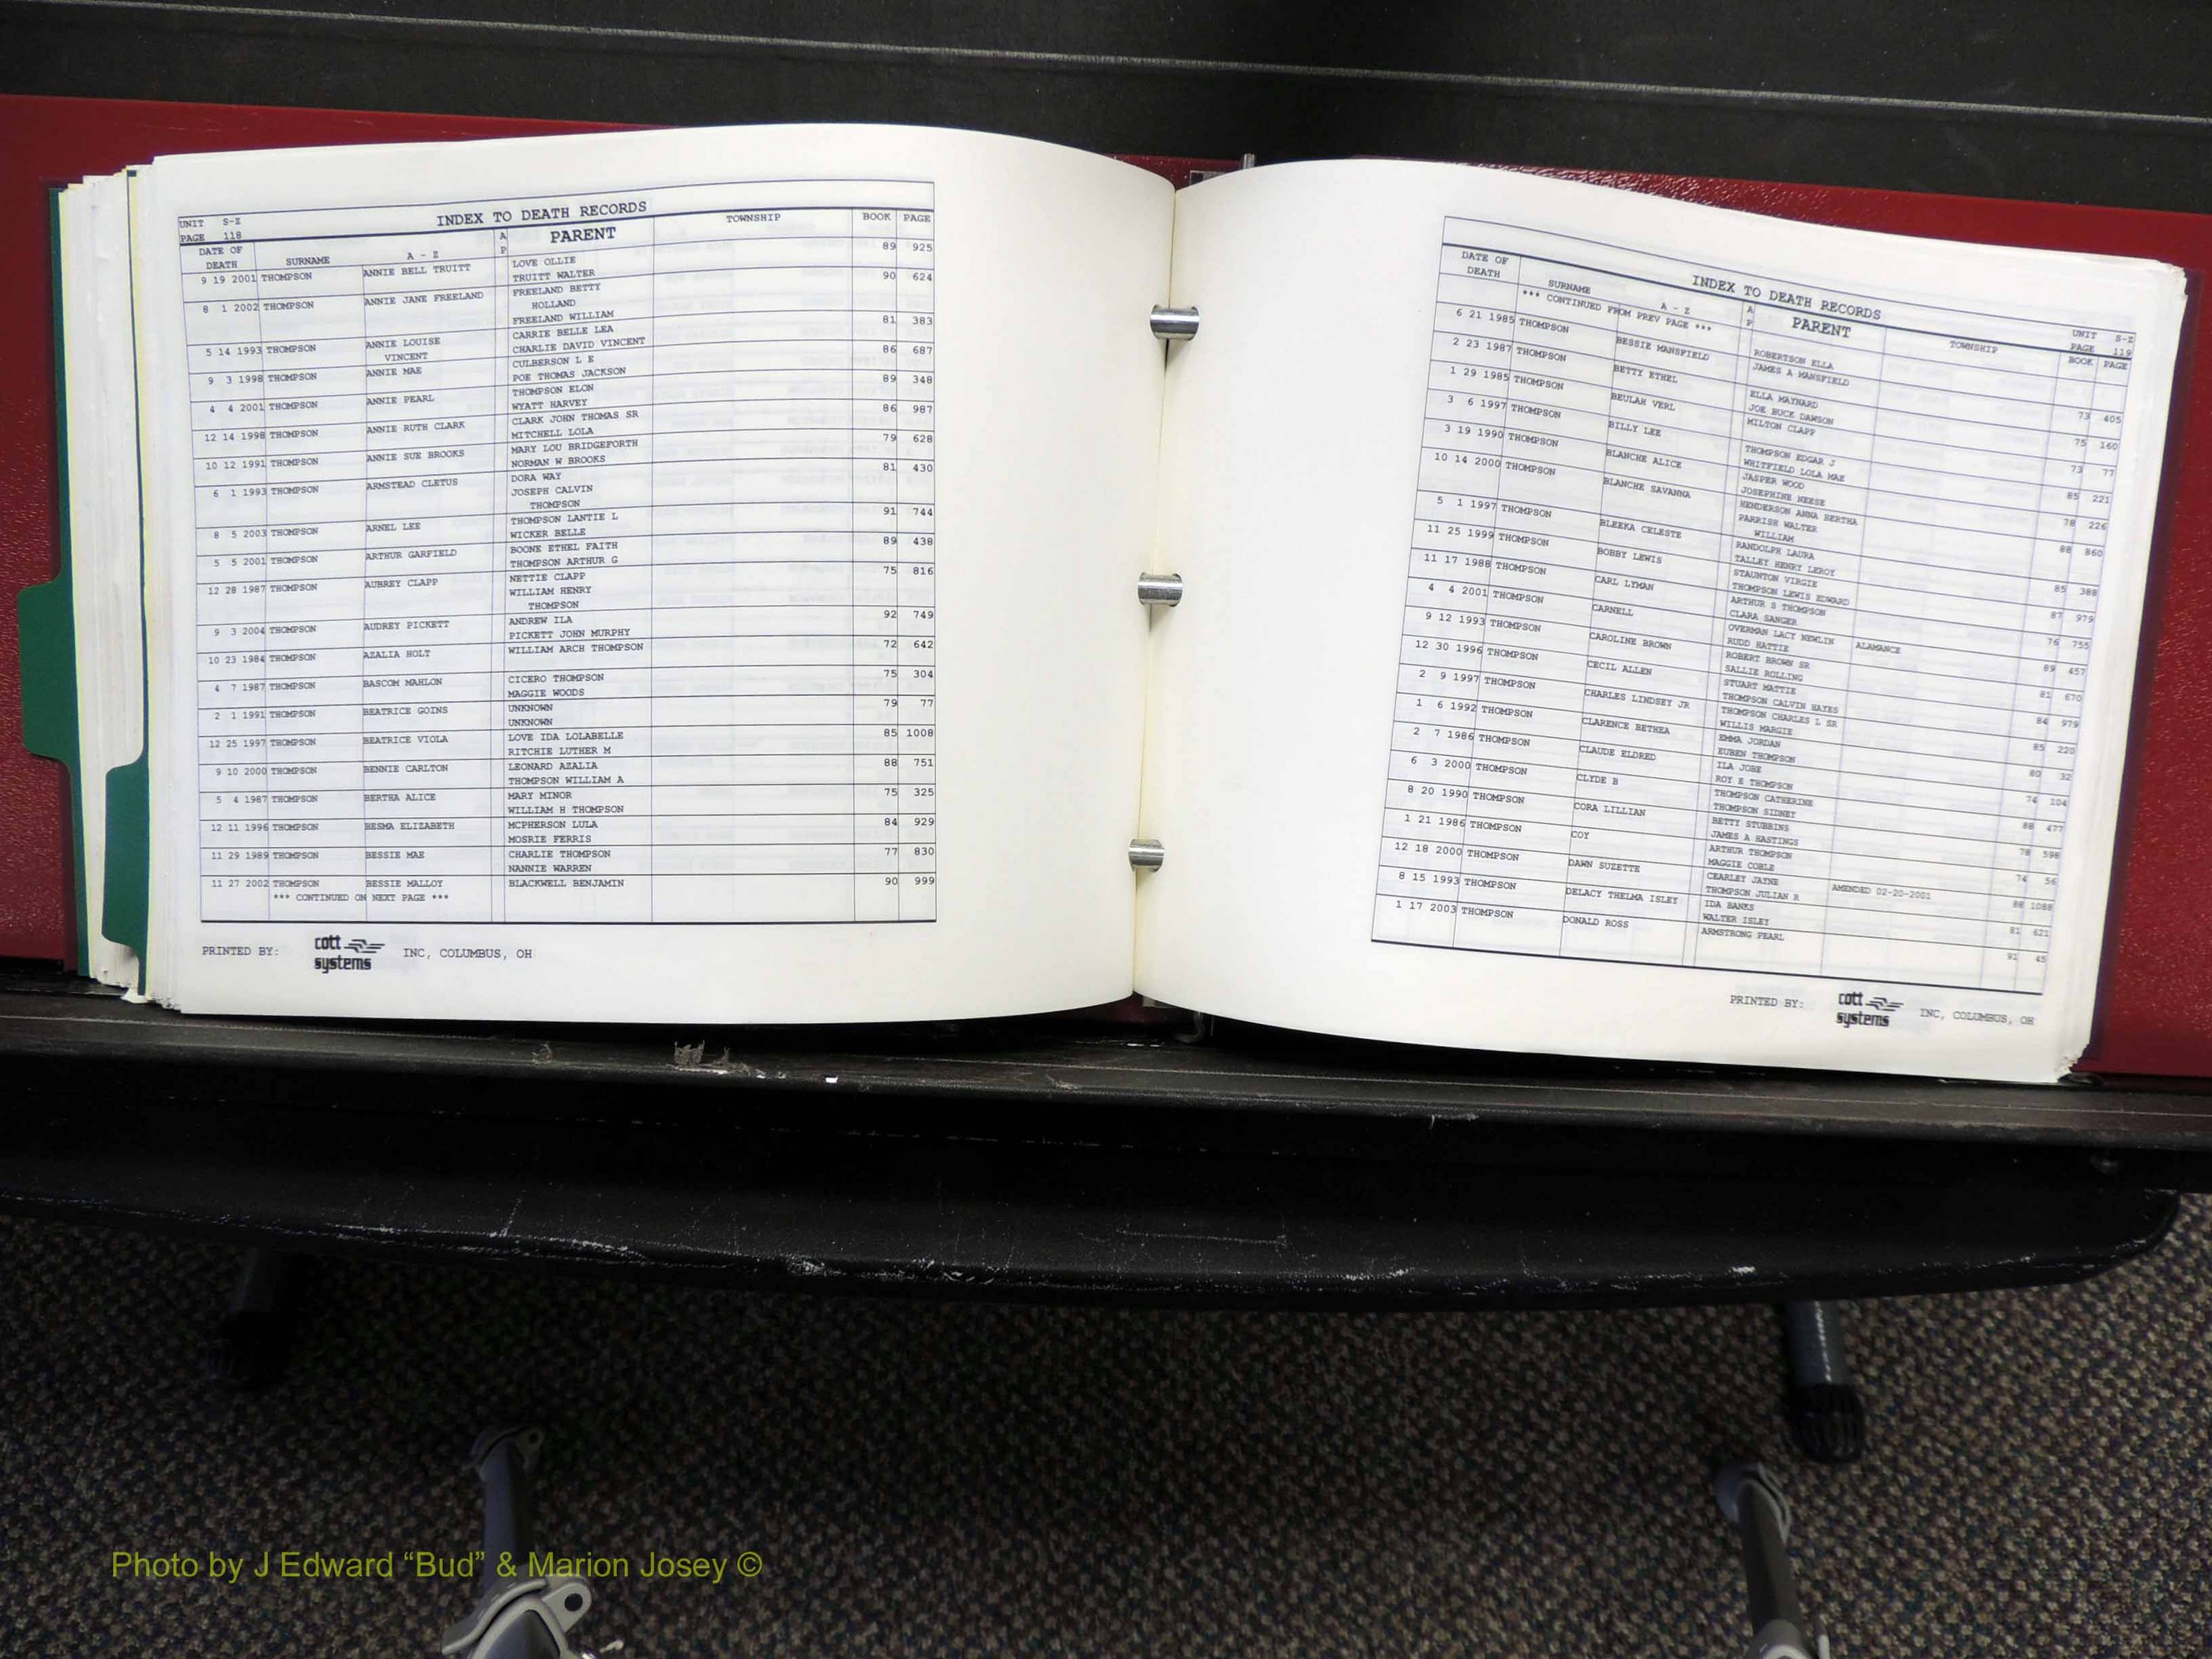 UNIT S-Z
PAGE 118
INDEX TO DEATH RECORDS
DATE OF DEATH SURNAME A - Z A P PARENT TOWNSHIP BOOK PAGE
9 19 2001 THOMPSON ANNIE BELL TRUITT LOVE OLLIE 89 925
TRUITT WALTER
8 1 2002 THOMPSON ANNIE JANE FREELAND FREELAND BETTY 90 624
HOLLAND
FREELAND WILLIAM
5 14 1993 THOMPSON ANNIE LOUISE CARRIE BELLE LEA 81 383
VINCENT CHARLIE DAVID VINCENT
9 3 1998 THOMPSON ANNIE MAE CULBERSON L E 86 687
POE THOMAS JACKSON
4 4 2001 THOMPSON ANNIE PEARL THOMPSON ELON 89 348
WYATT HARVEY
12 14 1998 THOMPSON ANNIE RUTH CLARK CLARK JOHN THOMAS SR 86 987
MITCHELL LOLA
10 12 1991 THOMPSON ANNIE SUE BROOKS MARY LOU BRIDGEFORTH 79 628
NORMAN W BROOKS
6 1 1993 THOMPSON ARMSTEAD CLETUS DORA WAY 81 430
JOSEPH CALVIN
THOMPSON
8 5 2003 THOMPSON ARNEL LEE THOMPSON LANTIE L 91 744
WICKER BELLE
5 5 2001 THOMPSON ARTHUR GARFIELD BOONE ETHEL FAITH 89 438
THOMPSON ARTHUR G
12 28 1987 THOMPSON AUBREY CLAPP NETTIE CLAPP 75 816
WILLIAM HENRY
THOMPSON
9 3 2004 THOMPSON AUDREY PICKETT ANDREW ILA 92 749
PICKETT JOHN MURPHY
10 23 1984 THOMPSON AZALIA HOLT WILLIAM ARCH THOMPSON 72 642
4 7 1987 THOMPSON BASCOM MAHLON CICERO THOMPSON 75 304
MAGGIE WOODS
2 1 1991 THOMPSON BEATRICE GOINS UNKNOWN 79 77
UNKNOWN
12 25 1997 THOMPSON BEATRICE VIOLA LOVE IDA LOLABELLE 85 1008
RITCHIE LUTHER M
9 10 2000 THOMPSON BENNIE CARLTON LEONARD AZALIA 88 751
THOMPSON WILLIAM A
5 4 1987 THOMPSON BERTHA ALICE MARY MINOR 75 325
WILLIAM H THOMPSON
12 11 1996 THOMPSON BESMA ELIZABETH MCPHERSON LULA 84 929
MOSRIE FERRIS
11 29 1989 THOMPSON BESSIE MAE CHARLIE THOMPSON 77 830
NANNIE WARREN
11 27 2002 THOMPSON BESSIE MALLOY BLACKWELL BENJAMIN 90 999
*** CONTINUED ON NEXT PAGE ***
PRINTED BY: cott systems INC, COLUMBUS, OH
INDEX TO DEATH RECORDS
UNIT S-Z
PAGE 119
DATE OF DEATH SURNAME A - Z A P PARENT TOWNSHIP BOOK PAGE
*** CONTINUED FROM PREV PAGE ***
ROBERTSON ELLA
6 21 1985 THOMPSON BESSIE MANSFIELD JAMES A MANSFIELD 73 405
2 23 1987 THOMPSON BETTY ETHEL ELLA MAYNARD 75 160
JOE BUCK DAWSON
1 29 1985 THOMPSON BEULAH VERL MILTON CLAPP 73 77
3 6 1997 THOMPSON BILLY LEE THOMPSON EDGAR J 85 221
WHITFIELD LOLA MAE
3 19 1990 THOMPSON BLANCHE ALICE JASPER WOOD 78 226
JOSEPHINE NEESE
10 14 2000 THOMPSON BLANCHE SAVANNA HENDERSON ANNA BERTHA 88 860
PARRISH WALTER
WILLIAM
5 1 1997 THOMPSON BLEEKA CELESTE RANDOLPH LAURA 85 388
TALLEY HENRY LEROY
11 25 1999 THOMPSON BOBBY LEWIS STAUNTON VIRGIE 87 979
THOMPSON LEWIS EDWARD
11 17 1988 THOMPSON CARL LYMAN ARTHUR S THOMPSON 76 755
CLARA SANGER
4 4 2001 THOMPSON CARNELL OVERMAN LACY NEWLIN ALAMANCE 89 457
RUDD HATTIE
9 12 1993 THOMPSON CAROLINE BROWN ROBERT BROWN SR 81 670
SALLIE ROLLING
12 30 1996 THOMPSON CECIL ALLEN STUART MATTIE 84 979
THOMPSON CALVIN HAYES
2 9 1997 THOMPSON CHARLES LINDSEY JR THOMPSON CHARLES L SR 85 220
WILLIS MARGIE
1 6 1992 THOMPSON CLARENCE BETHEA EMMA JORDAN 80 32
EUBEN THOMPSON
2 7 1986 THOMPSON CLAUDE ELDRED ILA JOBE 74 104
ROY E THOMPSON
6 3 2000 THOMPSON CLYDE B THOMPSON CATHERINE 88 477
THOMPSON SIDNEY
8 20 1990 THOMPSON CORA LILLIAN BETTY STUBBINS 78 598
JAMES A HASTINGS
1 21 1986 THOMPSON COY ARTHUR THOMPSON 74 56
MAGGIE COBLE
12 18 2000 THOMPSON DAWN SUZETTE CEARLEY JAYNE AMENDED 02-20-2001 88 1088
THOMPSON JULIAN R
8 15 1993 THOMPSON DELACY THELMA ISLEY IDA BANKS 81 621
WALTER ISLEY
1 17 2003 THOMPSON DONALD ROSS ARMSTRONG PEARL 91 45
PRINTED BY: cott systems INC, COLUMBUS, OH
Photo by J Edward “Bud” & Marion Josey ©